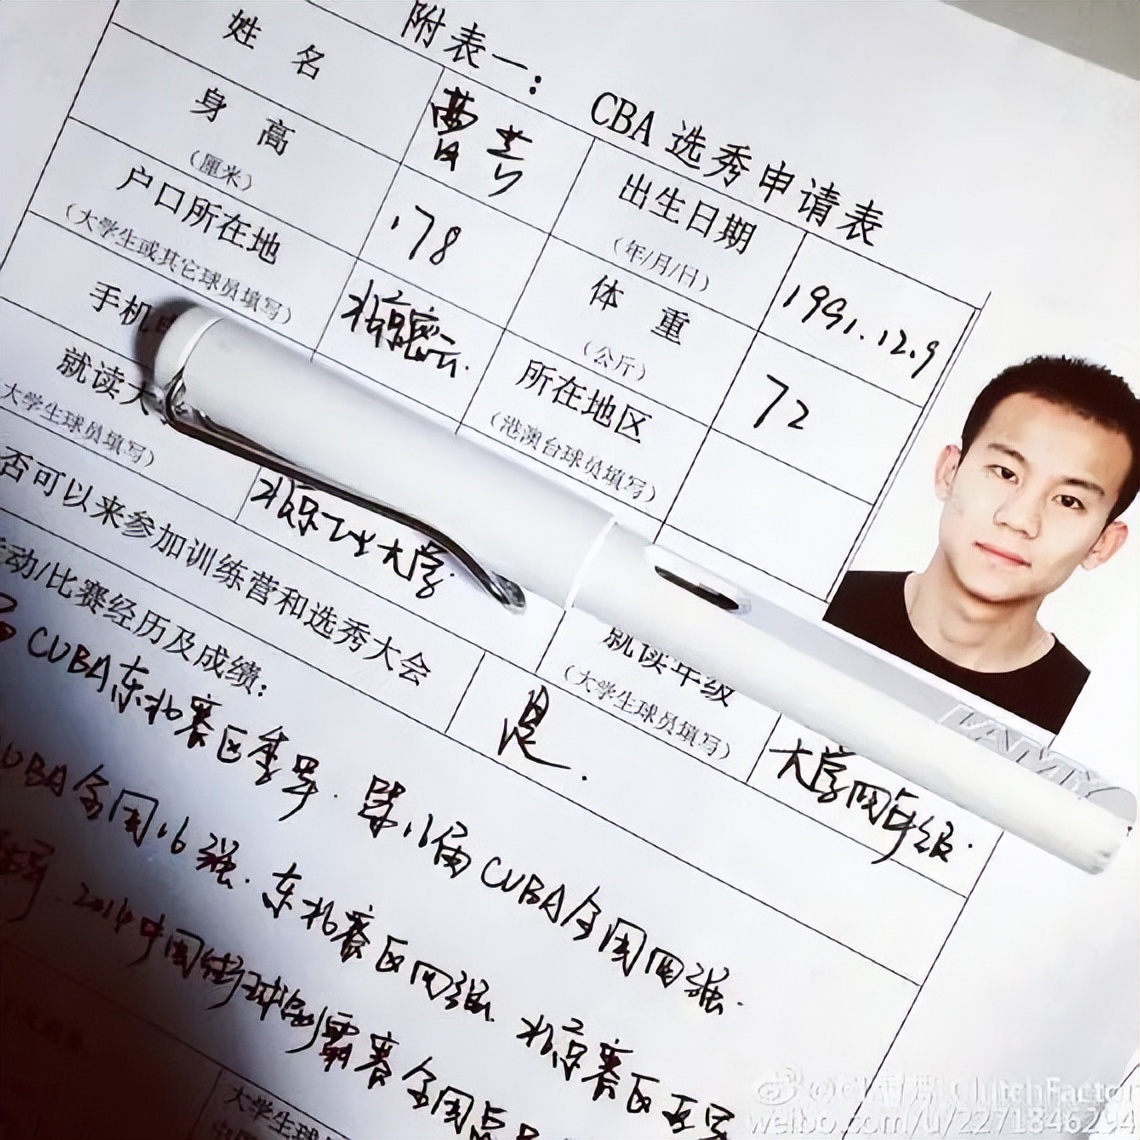 附表一:
CBA 选秀申请表
姓 名
曹芳
出生日期
(年/月/日)
1991.12.9
身 高
(厘米)
178
体 重
(公斤)
72
户口所在地
(大学生或其它球员填写)
北京密云.
所在地区
(港澳台球员填写)
手机
就读大
大学生球员填写)
北京工业大学.
就读年级
(大学生球员填写)
大学四年级.
否可以来参加训练营和选秀大会
是.
动/比赛经历及成绩:
CUBA东北赛区季军. 第16届CUBA全国四强.
CUBA全国16强. 东北赛区四强. 北京赛区亚军
2014中国街球争霸赛全国
大学生球
LAMY
ClutchFactor
weibo.com/u/2271846294